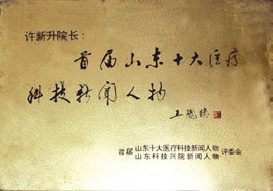 许新升院长：
首届山东十大医疗
科技新闻人物
首届 山东十大医疗科技新闻人物 评委会
山东科技兴院新闻人物